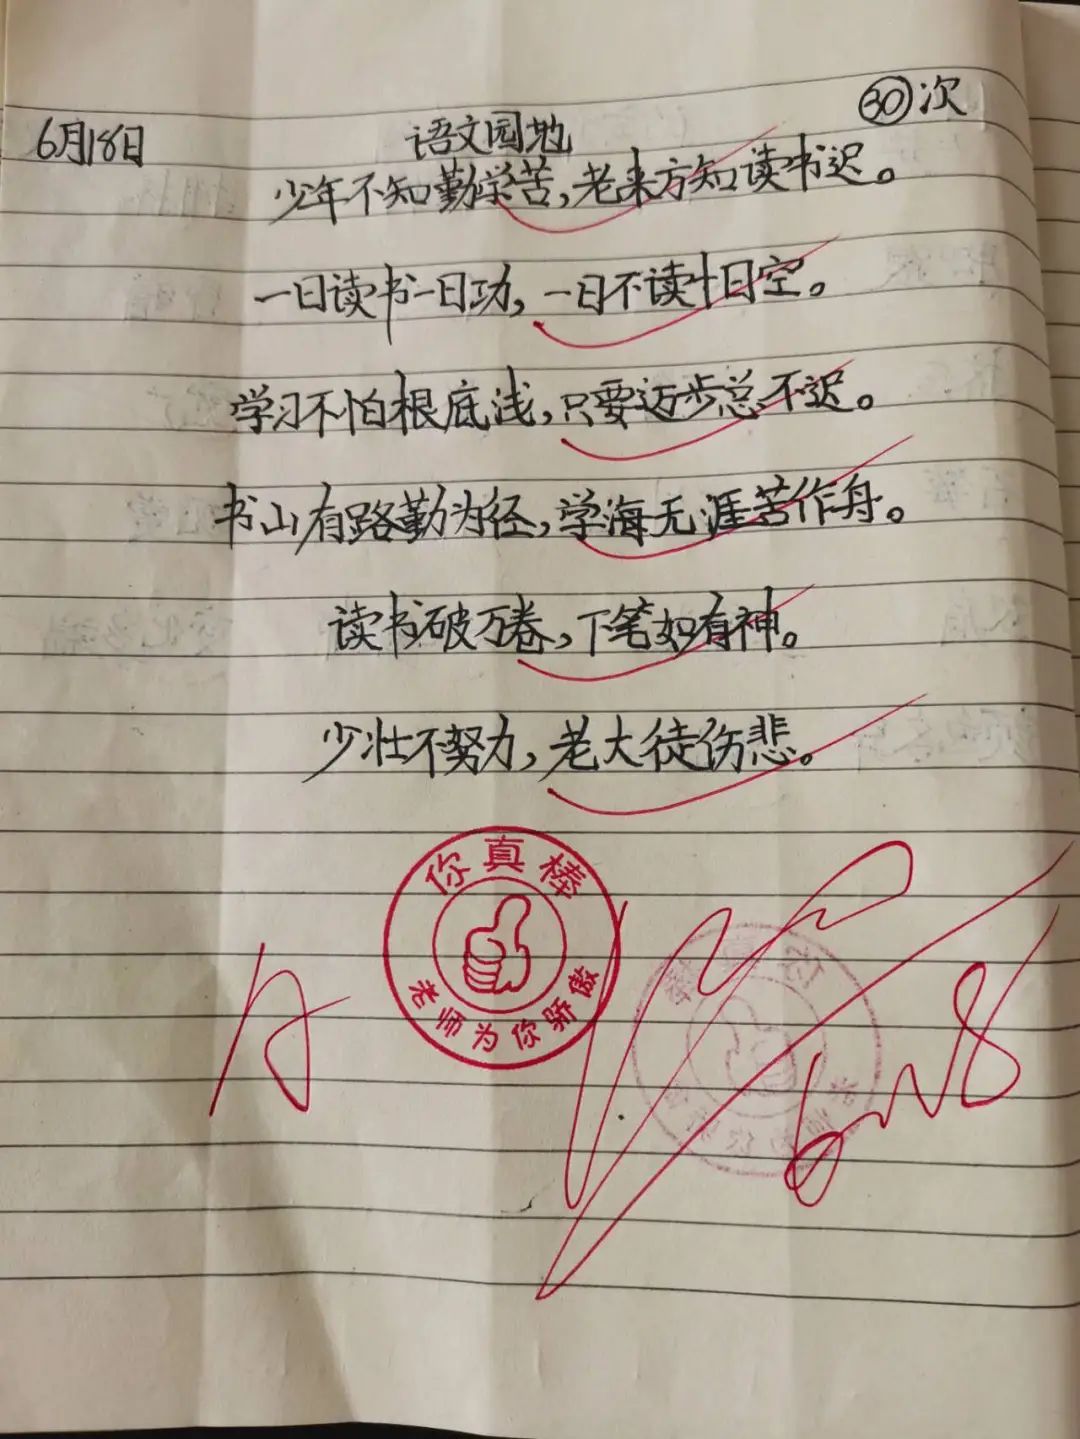 ㉚次
6月18日
语文园地
少年不知勤学苦,老来方知读书迟。
一日读书一日功,一日不读十日空。
学习不怕根底浅,只要迈步总不迟。
书山有路勤为径,学海无涯苦作舟。
读书破万卷,下笔如有神。
少壮不努力,老大徒伤悲。
你真棒
老师为你骄傲
A